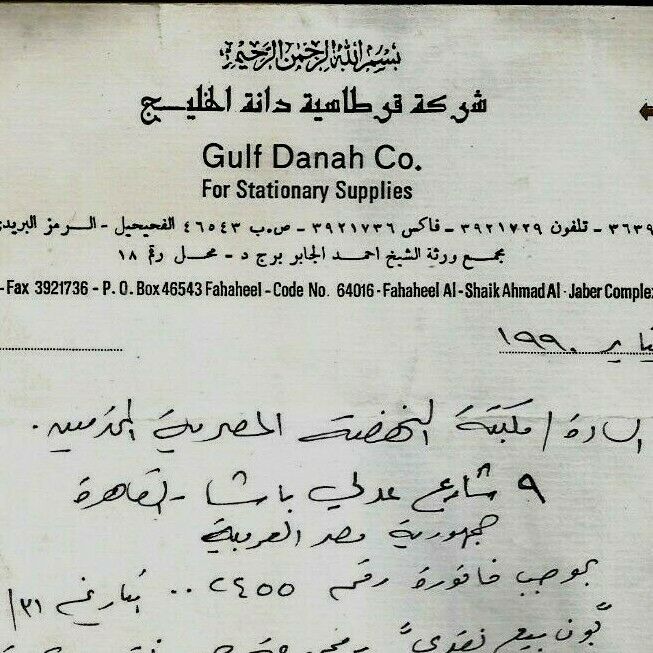 بسم الله الرحمن الرحيم
شركة قرطاسية دانة الخليج
Gulf Danah Co.
For Stationary Supplies
٣٦٣٩ - تلفون ٣٩٢١٧٢٩ - فاكس ٣٩٢١٧٣٦ - ص.ب ٤٦٥٤٣ الفحيحيل - الرمز البريدي
مجمع ورثة الشيخ احمد الجابر برج د - محل رقم ١٨
- Fax 3921736 - P. O. Box 46543 Fahaheel - Code No. 64016 - Fahaheel Al - Shaik Ahmad Al - Jaber Complex
يناير ١٩٩٠
السادة / مكتبة النهضة المصرية المحترمين .
٩ شارع عدلي باشا - القاهرة
جمهورية مصر العربية
بموجب فاتورة رقم ٢٤٥٥ .. بتاريخ ٣١/
بون بيع نقدي